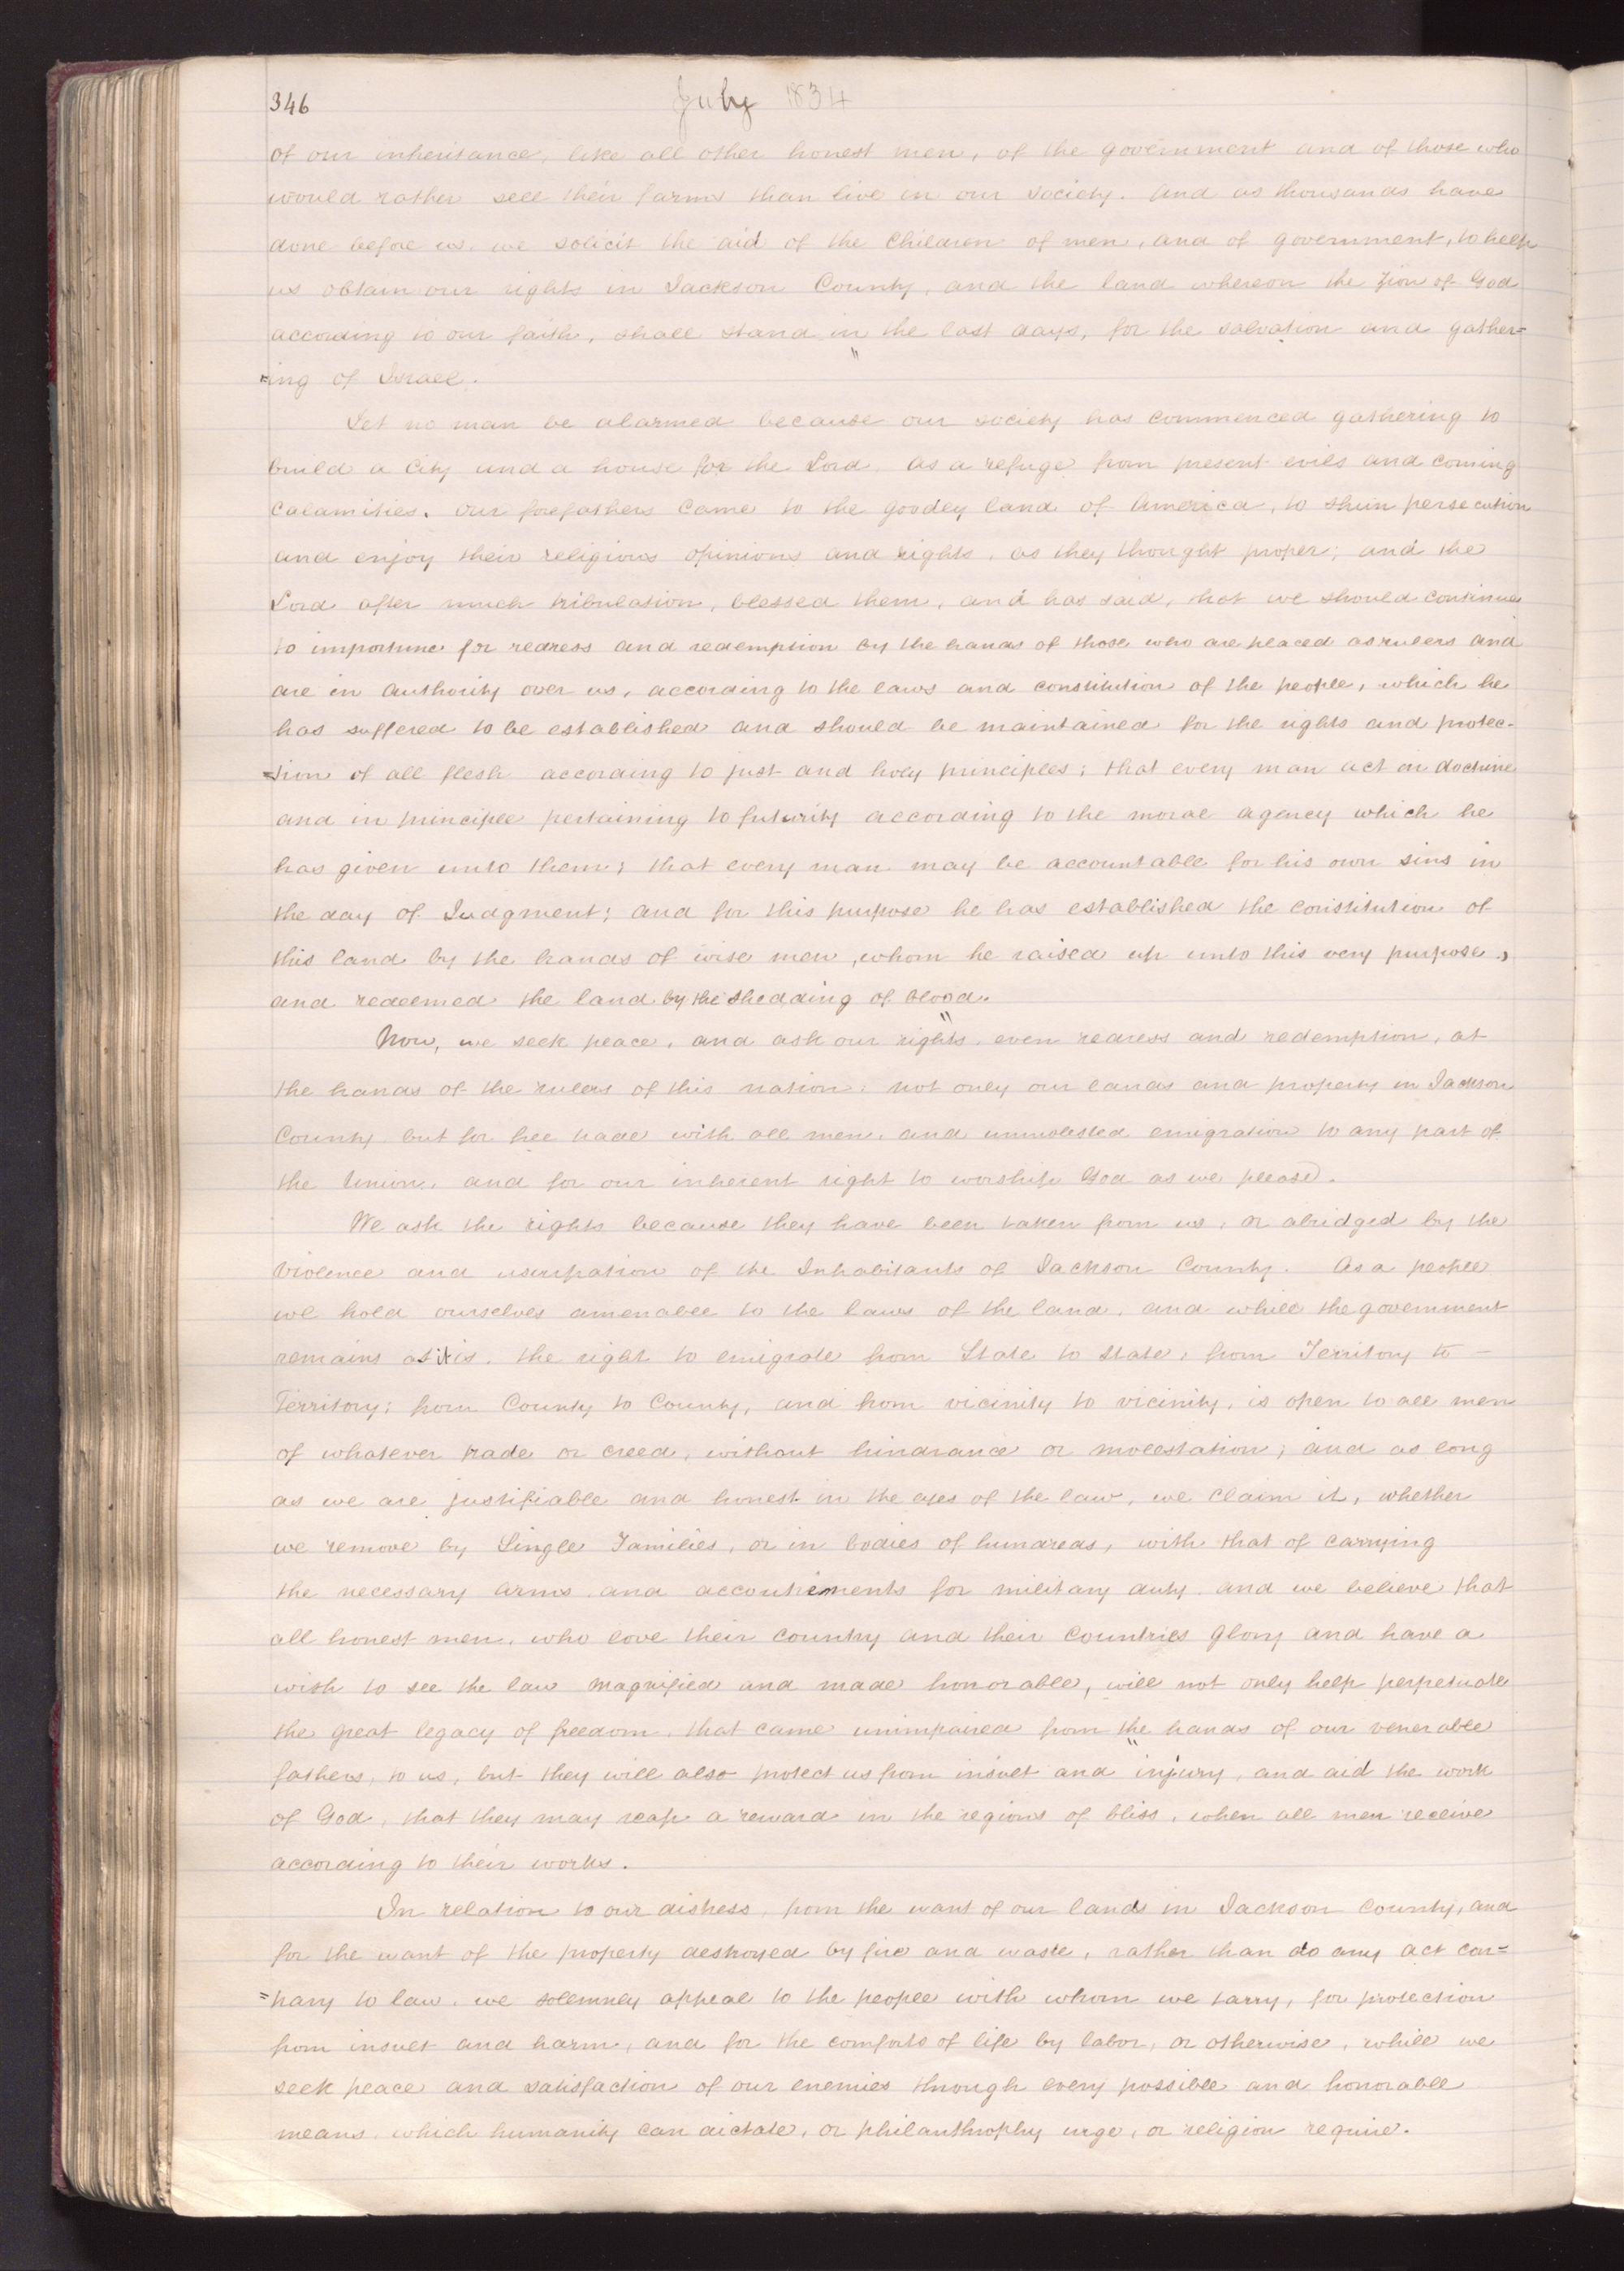 346
July 1834
of our inheritance, like all other honest men, of the government and of those who
would rather sell their farms than live in our society. And as thousands have
done before us, we solicit the aid of the Children of men, and of government, to help
us obtain our rights in Jackson County, and the land whereon the Zion of God
according to our faith, shall stand in the last days, for the salvation and gather=
=ing of Israel.
Let no man be alarmed because our society has commenced gathering to
build a City and a house for the Lord, as a refuge from present evils and coming
Calamities. Our forefathers Came to the goodly land of America, to shun persecution
and enjoy their religious opinions and rights, as they thought proper; and the
Lord after much tribulation, blessed them, and has said, that we should continue
to importune for redress and redemption by the hands of those who are placed as rulers and
are in authority over us, according to the laws and constitution of the people, which he
has suffered to be established and should be maintained for the rights and protec-
=tion of all flesh according to just and holy principles; that every man act in doctrine
and in principle pertaining to futurity according to the moral agency which he
has given unto them; that every man may be accountable for his own sins in
the day of Judgment; and for this purpose he has established the constitution of
this land by the hands of wise men, whom he raised up unto this very purpose,
and redeemed the land by the shedding of blood.
Now, we seek peace, and ask our rights, even redress and redemption, at
the hands of the rulers of this nation; not only our lands and property in Jackson
County, but for free trade with all men, and unmolested emigration to any part of
the Union, and for our inherent right to worship God as we please.
We ask the rights because they have been taken from us, or abridged by the
violence and usurpation of the Inhabitants of Jackson County. As a people
we hold ourselves amenable to the laws of the land, and while the government
remains as it is, the right to emigrate from State to State, from Territory to –
Territory; from County to County, and from vicinity to vicinity, is open to all men
of whatever trade or creed, without hindrance or molestation; and as long
as we are justifiable and honest in the eyes of the law, we claim it, whether
we remove by Single Families, or in bodies of hundreds, with that of carrying
the necessary arms and accoutrements for military duty. and we believe that
all honest men, who love their country and their Countries glory and have a
wish to see the law magnified and made honorable, will not only help perpetuate
the great legacy of freedom, that came unimpaired from the hands of our venerable
fathers, to us, but they will also protect us from insult and injury, and aid the work
of God, that they may reap a reward in the regions of bliss, when all men receive
according to their works.
In relation to our distress, from the want of our lands in Jackson County, and
for the want of the property destroyed by fire and waste, rather than do any act con=
=trary to law, we solemnly appeal to the people with whom we tarry, for protection
from insult and harm, and for the comforts of life by labor, or otherwise, while we
seek peace and satisfaction of our enemies through every possible and honorable
means, which humanity can dictate, or philanthrophy urge, or religion require.